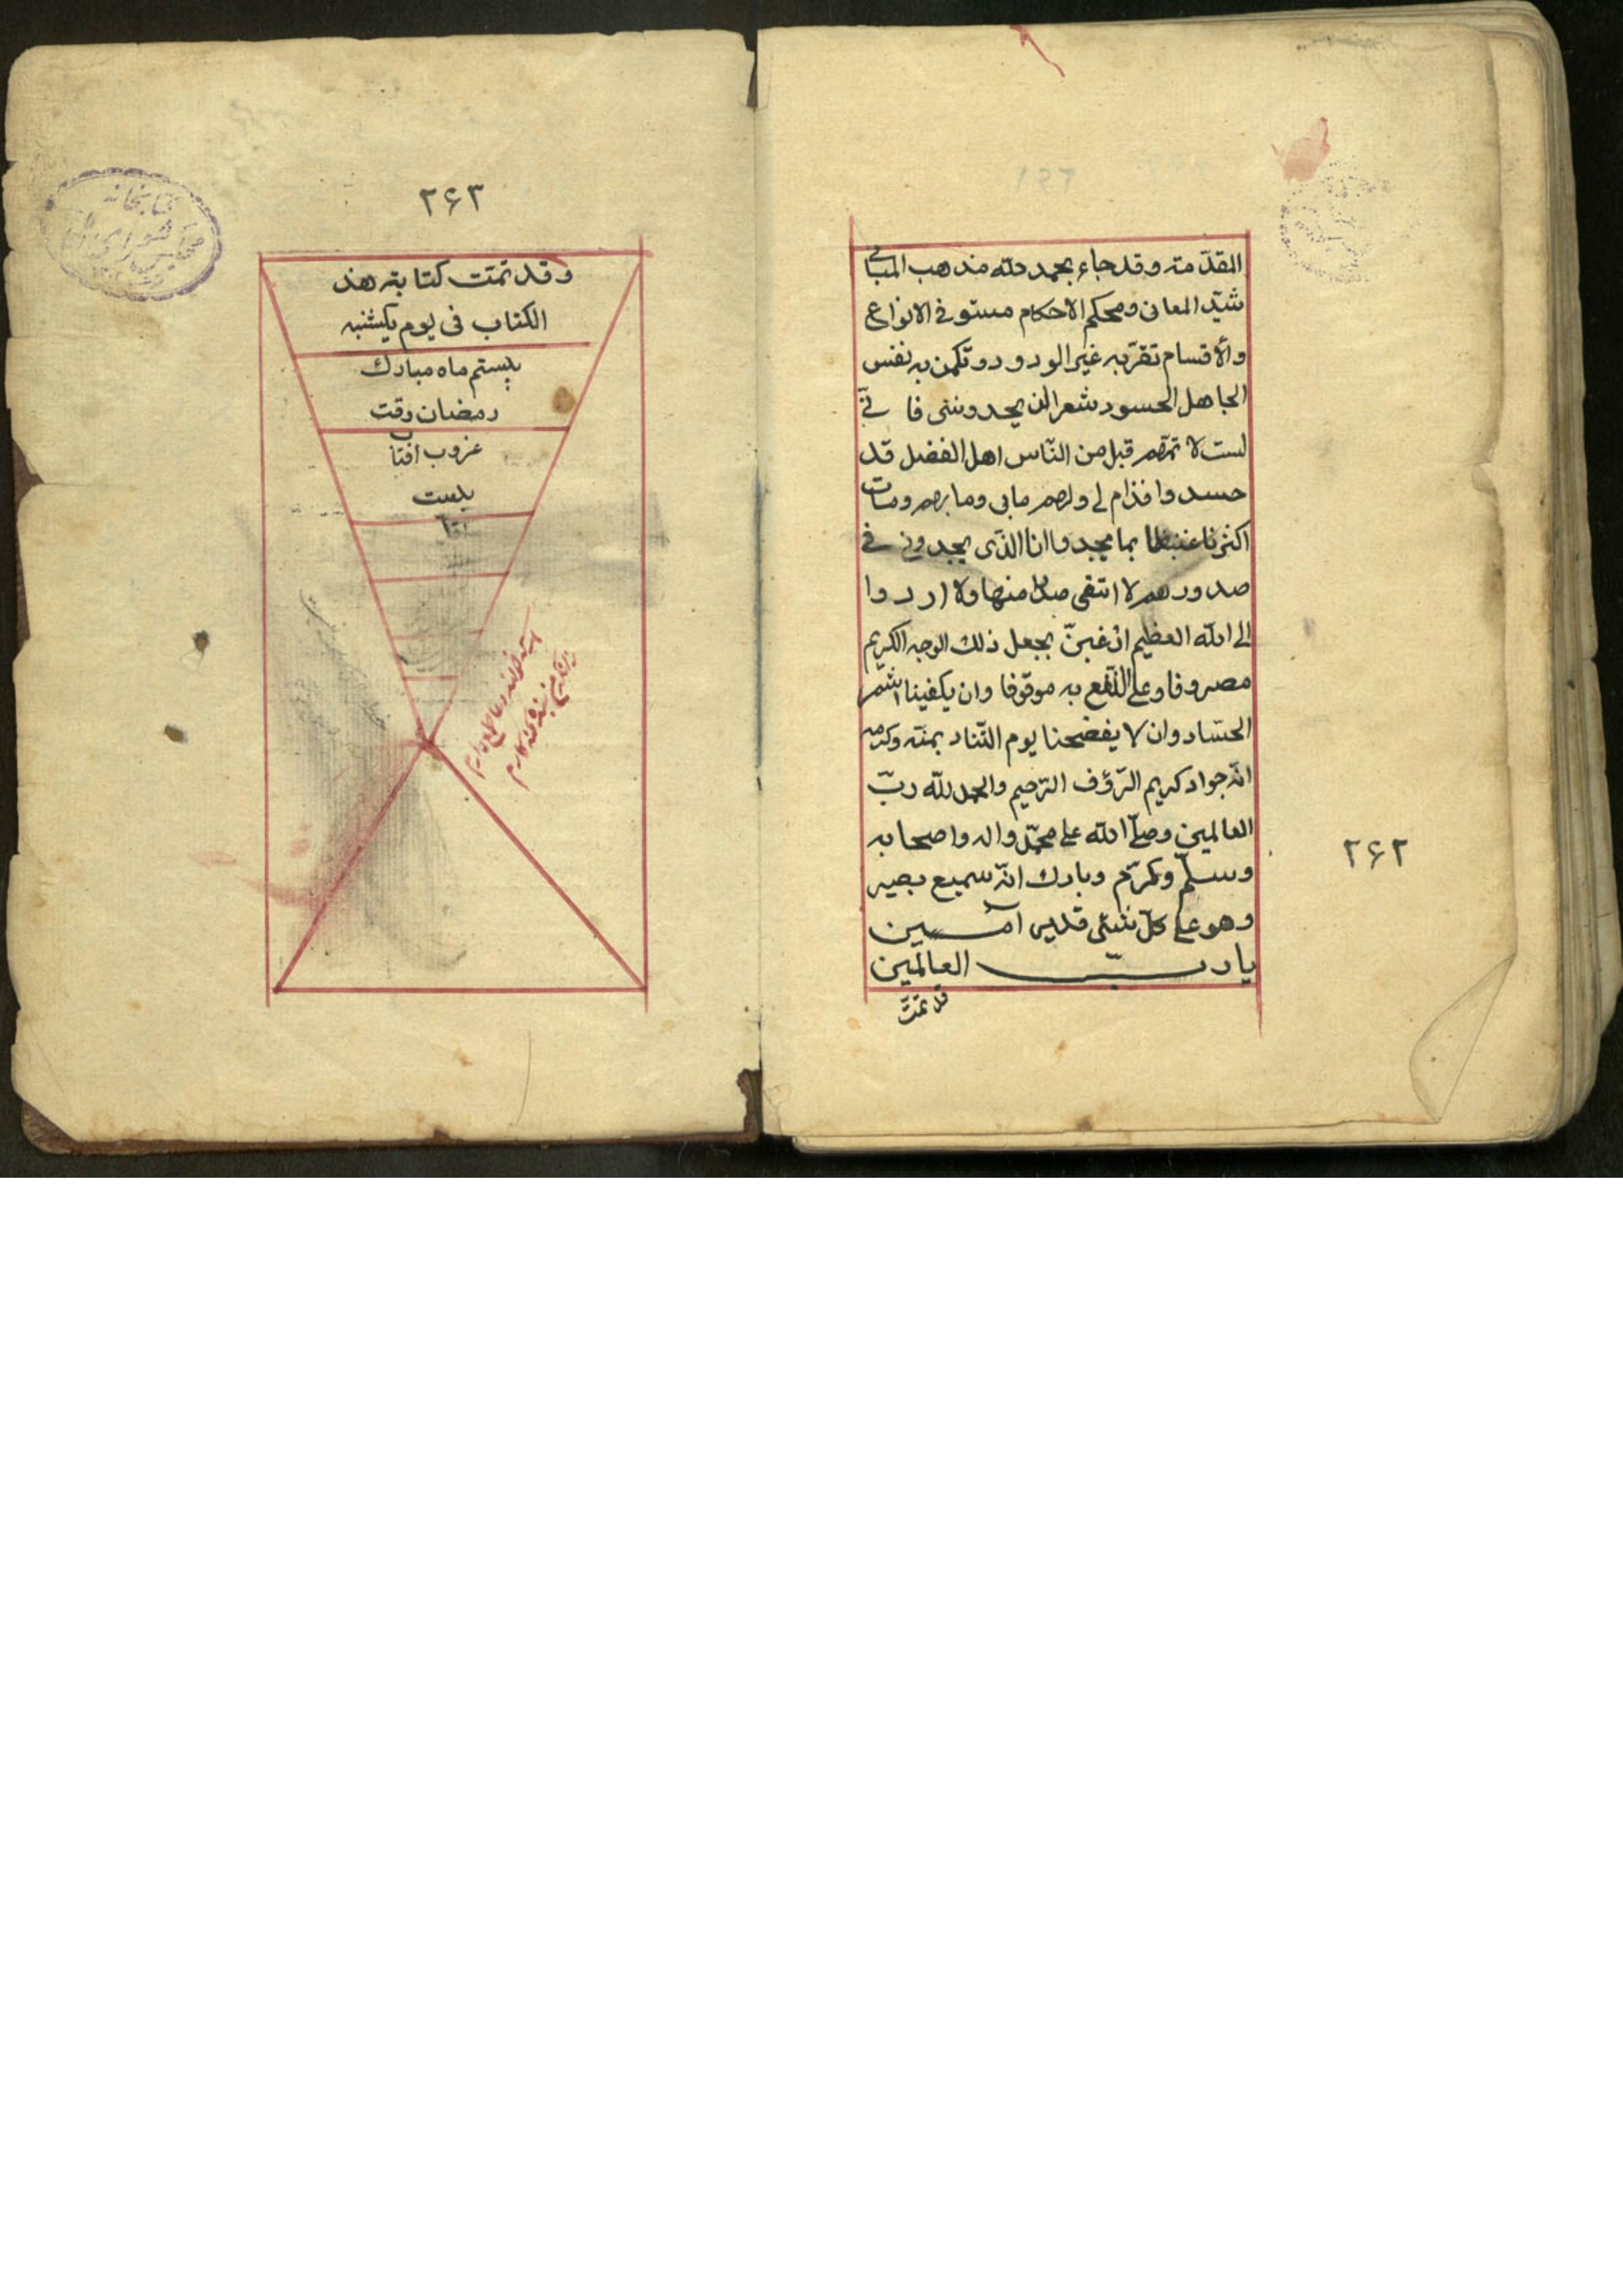 المقدّمته وقد جاء بحمد الله مذهب المبانی
شیّد المعانی ومحکم الاحکام مستوفی الانواع
والاقسام تقرّ به عین الودود وتکمن به نفس
الجاهل الحسود شعر ان یحدوننی فا نیّ
لست لا ئمهم قبل من النّاس اهل الفضل قد
حسدوا فدام لی ولهم مابی وما بهم ومات
اکثرنا غیظا بما یجدوا انا الذی یجدونی فی
صدورهم لا ارتقی صدرا منها ولا ارد وا
الی الله العظیم ارغب یجعل ذلك الوجه الکریم
مصروفا وعلی النّفع به موقوفا وان یکفینا شر
الحسّاد وان لا یفضحنا یوم التّناد بمنّه وکرمه
انّه جواد کریم الرّؤف الرّحیم والحمد للّه ربّ
العالمین وصلّی الله علی محمّد واله واصحابه
وسلّم وکرّم وبارك انّه سمیع بصیر
وهو علی کلّ شیئی قدیر آمین
یا ربّ العالمین
قد تمّت
۲۶۲
۲۶۳
وقد تمّت کتابته هذ
الکتاب فی یوم یکشنبه
بیستم ماه مبارك
رمضان وقت
غروب افتاب
بیست
کتابخانه
مجلس شورای